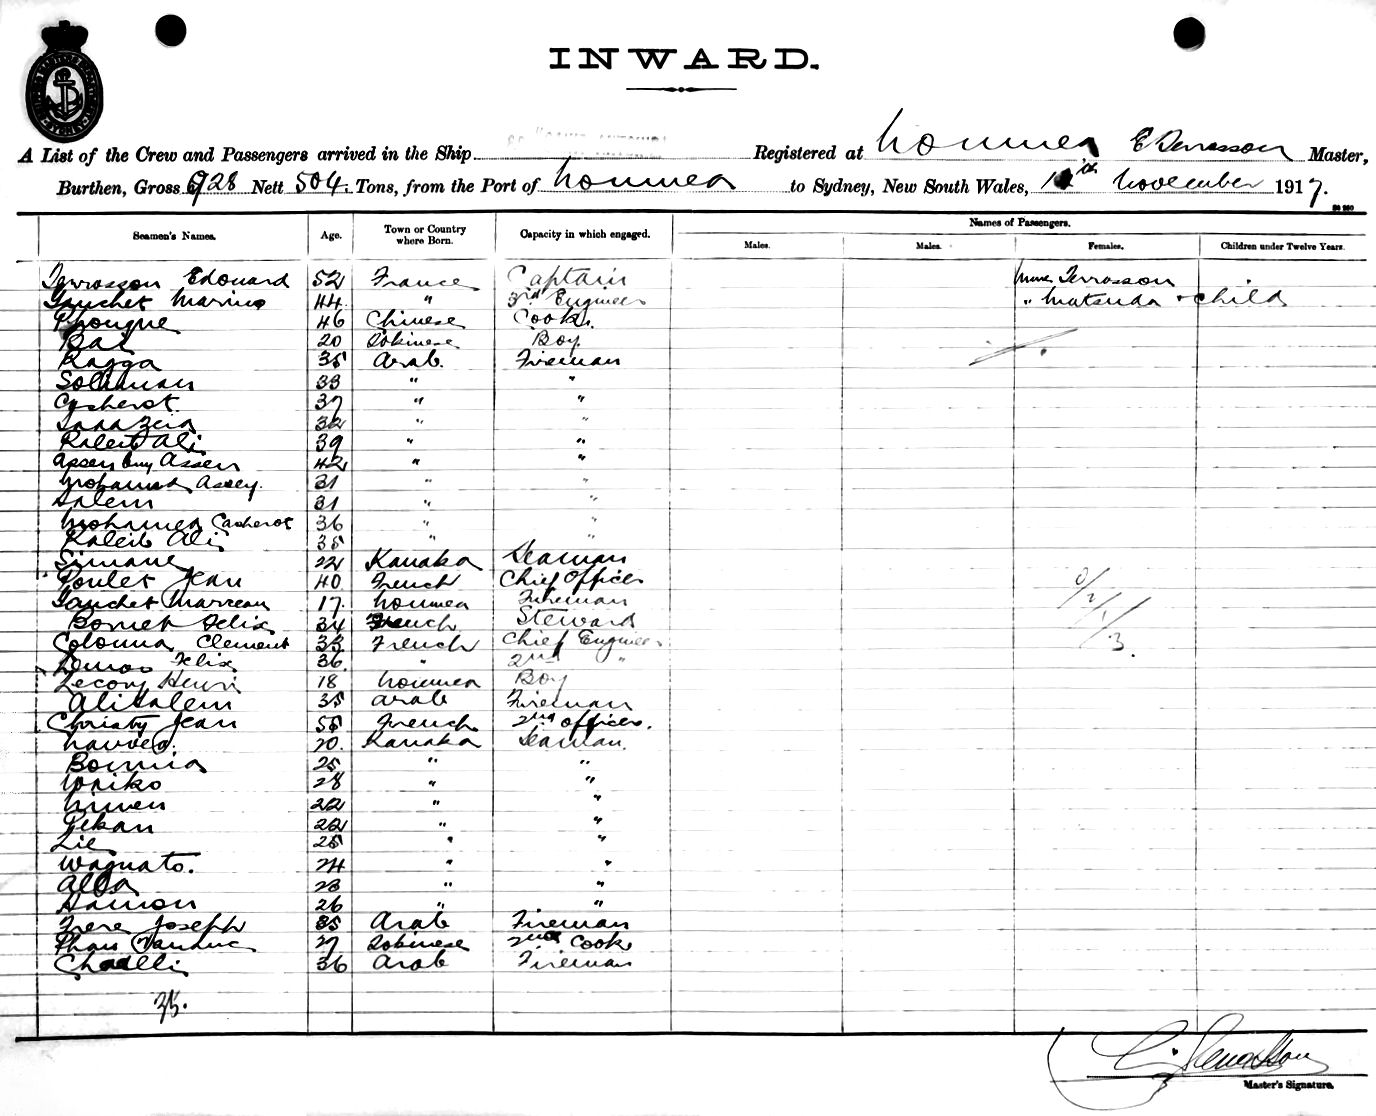 INWARD.
A List of the Crew and Passengers arrived in the Ship Registered at Noumea E Terrasson Master,
Burthen, Gross 928 Nett 504. Tons, from the Port of Noumea to Sydney, New South Wales, November 1917.
Names of Passengers.
Seamen's Names. Age. Town or Country where Born. Capacity in which engaged. Males. Males. Females. Children under Twelve Years.
Terrasson Edouard 52 France Captain Mme Terrasson
Gauchet Marius 44 " 3rd Engineer " Matsuda + child
Phougue 46 Chinese Cook.
Bai 20 Tokinese Boy
Ragga 35 Arab. Fireman
Soliman 33 " "
Casherot 37 " "
32 " "
Kaleib Ali 39 " "
Assen buy Assen 42 " "
Mohamed Assey. 31 " "
Salem 31 " "
Mohamed Casherot 36 " "
Kaleib Ali 35 " "
Simane 22 Kanaka Seaman
Poulet Jean 40 French Chief Officer
Gauchet Marceau 17. Noumea Fireman
Bornet Felix 34 French Steward
Colonna Clement 33 French Chief Engineer
Felix 36. " 2nd "
Lecony Henri 18 Noumea Boy
Ali Salem 35 Arab Fireman
Christy Jean 55 French 2nd Officer.
20. Kanaka Seaman.
Boinia 25 " "
Waiko 28 " "
22 " "
Pekan 22 " "
Lie 25 " "
Waguato. 24 " "
Alla 23 " "
Samon 26 " "
Frere Joseph 35 Arab Fireman
Phan Vanduc 27 Tokinese 2nd Cook
Chaelli 36 Arab Fireman
0/2/1/3.
35.
Master's Signature.